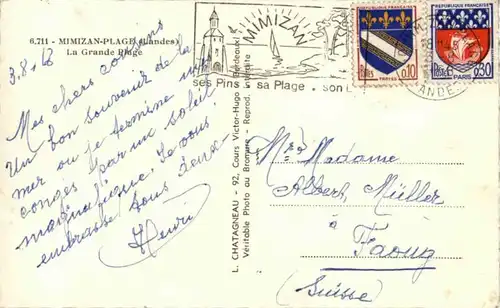 6.711 - MIMIZAN-PLAGE (Landes)
La Grande Plage
3.8.
Mes chers cousins
Un bon souvenir de la
mer ou je termine mes
conges par un soleil
magnifique. Je vous
embrasse tous deux
Henri
L. CHATAGNEAU - 92, Cours Victor-Hugo - Bordeaux
Véritable Photo au Bromure - Reprod. Interdite
MIMIZAN
ses Pins sa Plage son
REPUBLIQUE FRANÇAISE
POSTES 0,10
TROYES
REPUBLIQUE FRANÇAISE
POSTES 0,30
PARIS
Mr & Madame
Albert Müller
à
Faoug
(Suisse)